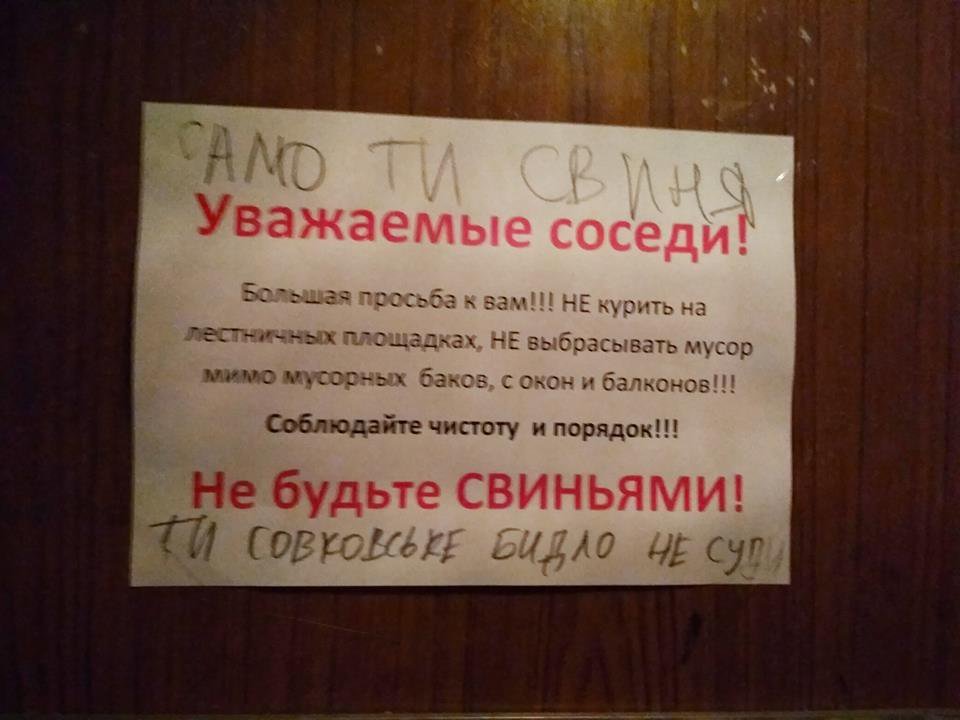 САМО ТИ СВИНЯ
Уважаемые соседи!
Большая просьба к вам!!! НЕ курить на
лестничных площадках, НЕ выбрасывать мусор
мимо мусорных баков, с окон и балконов!!!
Соблюдайте чистоту и порядок!!!
Не будьте СВИНЬЯМИ!
ТИ СОВКОВСЬКЕ БИДЛО НЕ СУДИ